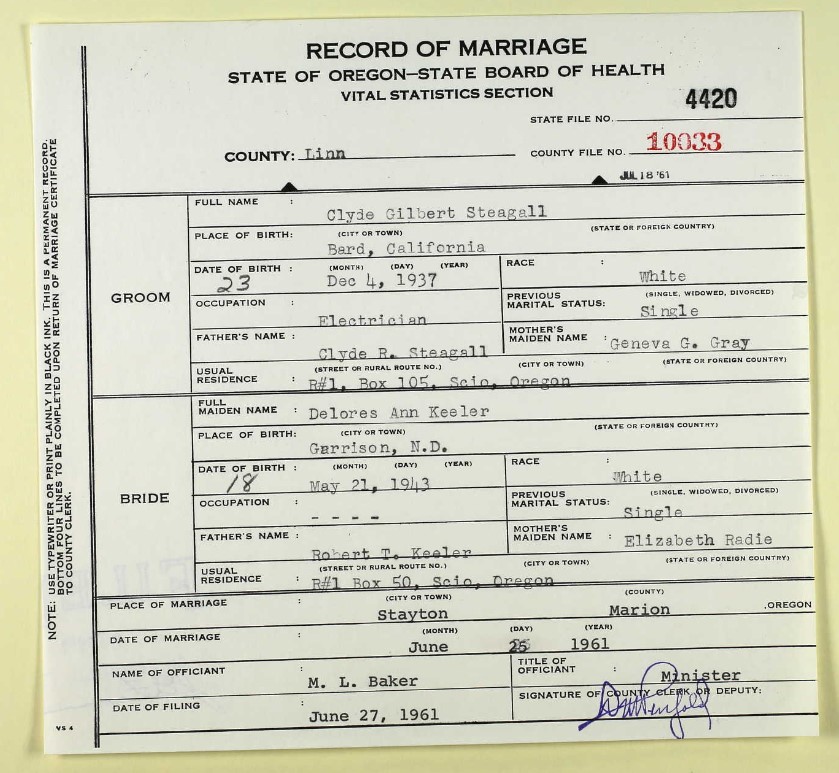 RECORD OF MARRIAGE
STATE OF OREGON—STATE BOARD OF HEALTH
VITAL STATISTICS SECTION
4420
STATE FILE NO.
COUNTY: Linn
COUNTY FILE NO. 10033
JUL 18 '61
NOTE: USE TYPEWRITER OR PRINT PLAINLY IN BLACK INK. THIS IS A PERMANENT RECORD.
BOTTOM FOUR LINES TO BE COMPLETED UPON RETURN OF MARRIAGE CERTIFICATE
TO COUNTY CLERK.
GROOM
FULL NAME : Clyde Gilbert Steagall
PLACE OF BIRTH: (CITY OR TOWN) (STATE OR FOREIGN COUNTRY)
Bard, California
DATE OF BIRTH : (MONTH) (DAY) (YEAR)
23 Dec 4, 1937
RACE : White
OCCUPATION : Electrician
PREVIOUS MARITAL STATUS: (SINGLE, WIDOWED, DIVORCED)
Single
FATHER'S NAME : Clyde R. Steagall
MOTHER'S MAIDEN NAME : Geneva G. Gray
USUAL RESIDENCE : (STREET OR RURAL ROUTE NO.) (CITY OR TOWN) (STATE OR FOREIGN COUNTRY)
R#1, Box 105, Scio, Oregon
BRIDE
FULL MAIDEN NAME : Delores Ann Keeler
PLACE OF BIRTH: (CITY OR TOWN) (STATE OR FOREIGN COUNTRY)
Garrison, N.D.
DATE OF BIRTH : (MONTH) (DAY) (YEAR)
18 May 21, 1943
RACE : White
OCCUPATION : - - - -
PREVIOUS MARITAL STATUS: (SINGLE, WIDOWED, DIVORCED)
Single
FATHER'S NAME : Robert T. Keeler
MOTHER'S MAIDEN NAME : Elizabeth Radie
USUAL RESIDENCE : (STREET OR RURAL ROUTE NO.) (CITY OR TOWN) (STATE OR FOREIGN COUNTRY)
R#1 Box 50, Scio, Oregon
PLACE OF MARRIAGE : (CITY OR TOWN) (COUNTY)
Stayton Marion , OREGON
DATE OF MARRIAGE : (MONTH) (DAY) (YEAR)
June 1961
NAME OF OFFICIANT : M. L. Baker
TITLE OF OFFICIANT : Minister
DATE OF FILING : June 27, 1961
SIGNATURE OF COUNTY CLERK OR DEPUTY:
VS 4